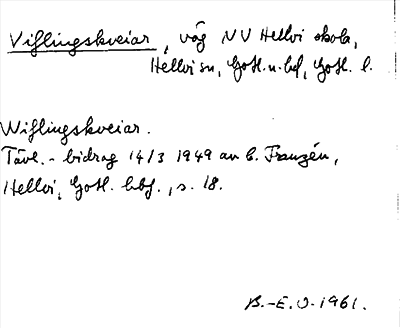 Viflingskveiar, väg NV Hellvi skola,
Hellvi sn, Gotl. n. hd, Gotl. l.
Wiflingskveiar.
Tävl.-bidrag 14/3 1949 av E. Franzén,
Hellvi, Gotl. hbf., s. 18.
B.-E. O. 1961.